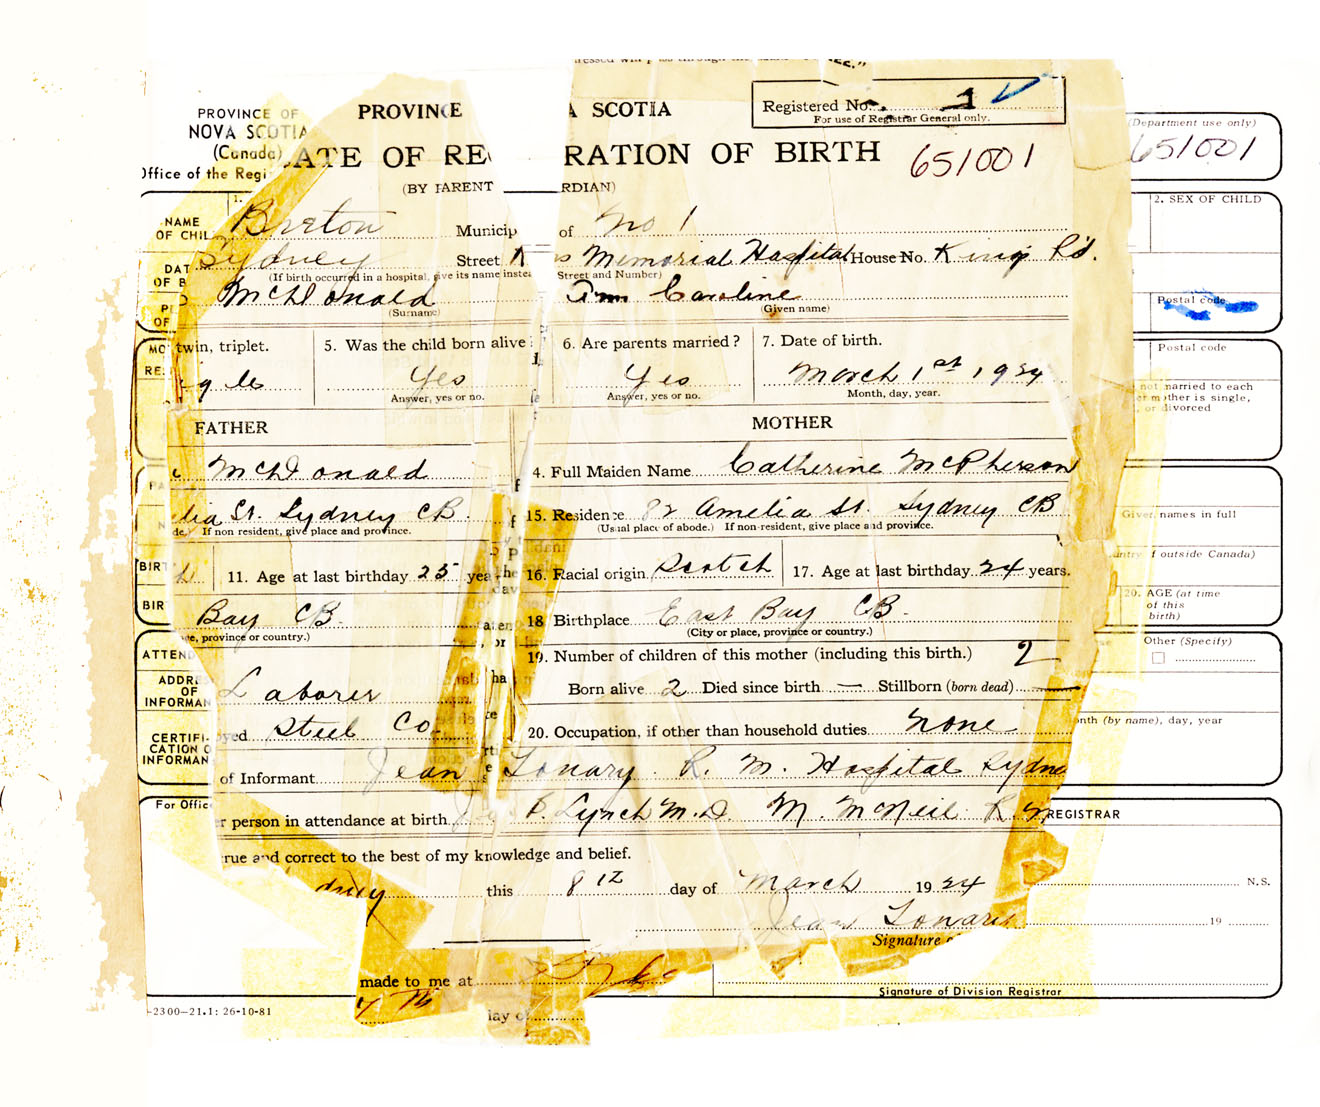 PROVINCE OF
NOVA SCOTIA
(Canada)
Office of the Regi
PROVINCE A SCOTIA
Registered No. 1
For use of Registrar General only.
ATE OF RE RATION OF BIRTH 651001
(BY PARENT RDIAN)
(Department use only)
651001
1.
NAME
OF CHIL
Breton Municip of No 1
2. SEX OF CHILD
DAT
OF B
Sydney Street Memorial Hospital House No. King's Rd.
(If birth occurred in a hospital, give its name instea Street and Number)
McDonald Ann Caroline
(Surname) (Given name)
Postal code
twin, triplet. 5. Was the child born alive 6. Are parents married? 7. Date of birth.
Postal code
gle Yes Yes March 1st 1934
Answer, yes or no. Answer, yes or no. Month, day, year.
not married to each
mother is single,
or divorced
FATHER MOTHER
McDonald 4. Full Maiden Name Catherine McPherson
lia St. Sydney CB 15. Residence 82 Amelia St. Sydney CB
de. If non resident, give place and province. (Usual place of abode.) If non-resident, give place and province.
Given names in full
BIRT 11. Age at last birthday 25 yea 16. Racial origin Scotch 17. Age at last birthday 24 years.
untry if outside Canada)
BIR
Bay CB. 18 Birthplace East Bay CB.
ge, province or country.) (City or place, province or country.)
20. AGE (at time
of this
birth)
ATTEND
19. Number of children of this mother (including this birth.) 2
Other (Specify)
ADDRE
OF
INFORMAN
Laborer Born alive 2 Died since birth — Stillborn (born dead) —
CERTIFI-
CATION O
INFORMAN
yed Steel Co. 20. Occupation, if other than household duties None
onth (by name), day, year
of Informant Jean Lonary. R. M. Hospital Sydney
For Office
r person in attendance at birth P. Lynch M.D. M. McNeil R.N.
REGISTRAR
rue and correct to the best of my knowledge and belief.
dney this 8th day of March 1934
N.S.
Jean Lonary
19
Signature
made to me at
7 Th
lay o
Signature of Division Registrar
-2300-21.1: 26-10-81